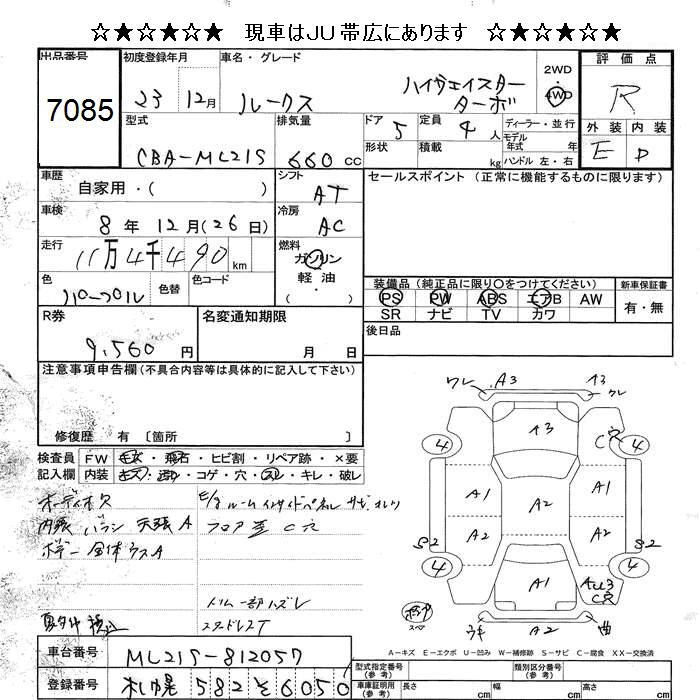 ☆★☆★☆★ 現車はJU帯広にあります ☆★☆★☆★
出品番号 初度登録年月 車名・グレード 2WD 評価点
7085 23 12月 ルークス ハイウェイスター ターボ 4WD R
型式 排気量 ドア 定員 ディーラー・並行 外装 内装
CBA-ML21S 660 cc 5 4人 モデル年式 年 E D
形状 積載 kg ハンドル 左・右
車歴 シフト セールスポイント(正常に機能するものに限ります)
自家用・( ) AT
車検 冷房
8年 12月(26日) AC
走行 燃料
11万4千490 km ガソリン
色 色替 色コード 軽油
パープル ( )
装備品(純正品に限り○をつけてください) 新車保証書
PS PW ABS エアB AW 有・無
SR ナビ TV カワ
R券 名変通知期限 後日品
9,560円 月 日
注意事項申告欄(不具合内容等は具体的に記入して下さい)
修復歴 有 〔箇所 〕
検査員 FW キズ・飛石・ヒビ割・リペア跡・×要
記入欄 内装 キズ・汚れ・コゲ・穴・スレ・キレ・破レ
ワレ A3 A3 ワレ
4 A3 C穴 4
A1 A2 A1
A2 A2
S2 S2
4 A1 AU3 C穴 4
ウキ A2 曲
内張ハガシ 天張A フロア歪 C穴
ボデー全体ウスA
トリム一部ハズレ
スタッドレスT
A-キズ E-エクボ U-凹み W-補修跡 S-サビ C-腐食 XX-交換済
車台番号 ML21S-812057
型式指定番号(参考) 類別区分番号(参考)
登録番号 札幌 582 そ 6050
車庫証明用(参考) 長さ cm 幅 cm 高さ cm